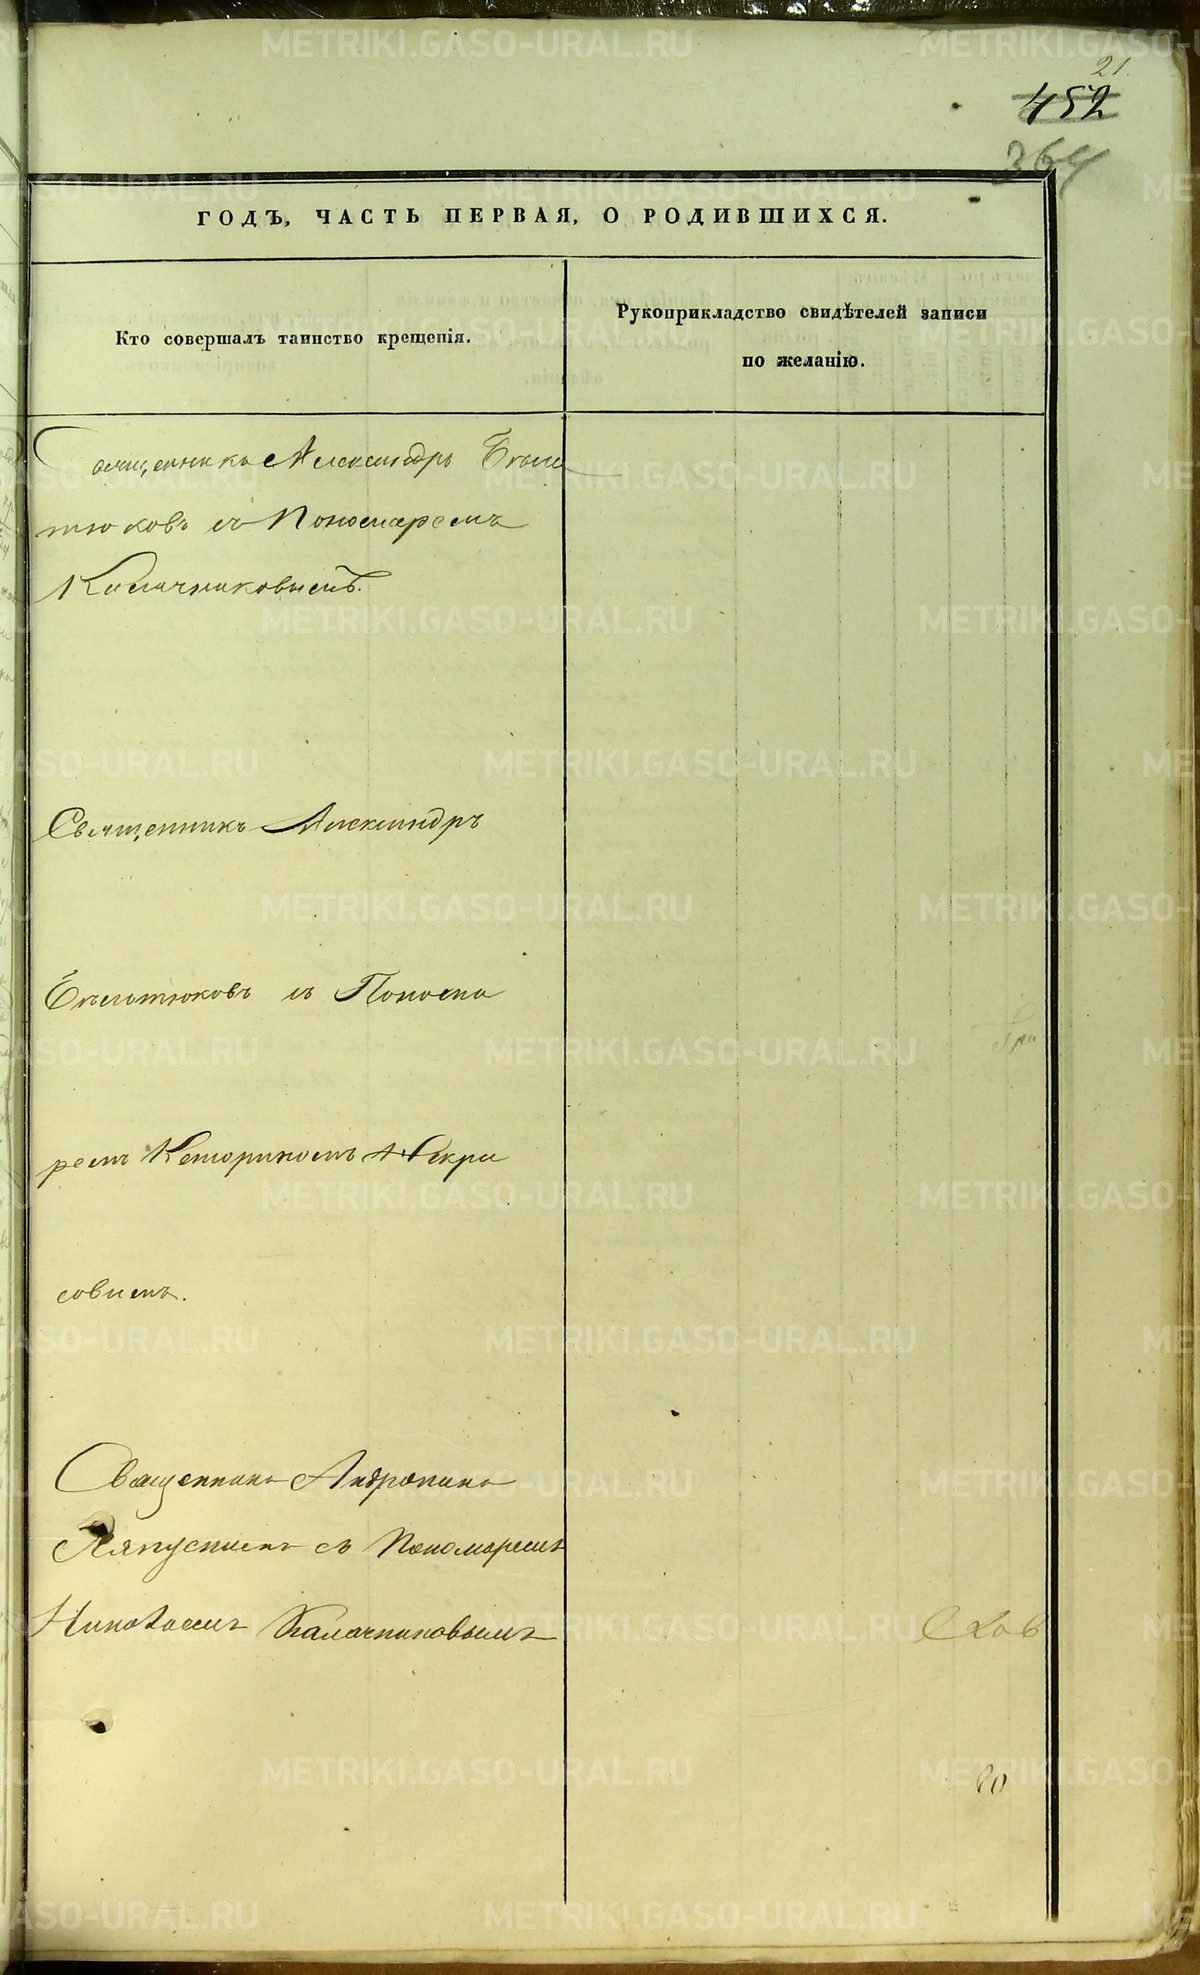 21.
452
364
ГОДЪ, ЧАСТЬ ПЕРВАЯ, О РОДИВШИХСЯ.
Кто совершалъ таинство крещенія.
Рукоприкладство свидѣтелей записи
по желанію.
Священникъ Александръ Бѣль
тюковъ съ Пономаремъ
Калачниковымъ.
Священникъ Александръ
Бѣльтюковъ съ Понома
ремъ Некри
совымъ.
Священникъ Андроникъ
Ляпустинъ съ Пономаремъ
Николаемъ Калачниковымъ
METRIKI.GASO-URAL.RU